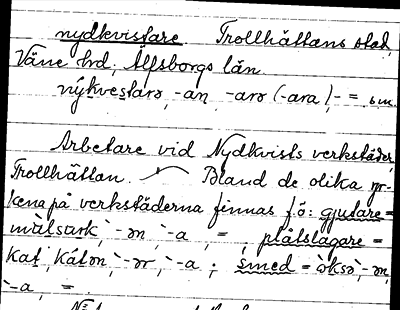 nydkvistare Trollhättans stad,
Väne hd, Älfsborgs län.
nýkvestarə, -an, -arə (-ara), - = sm.
Arbetare vid Nydkvists verkstäder,
Trollhättan. Bland de olika yr-
kena på verkstäderna finnas f.ö: gjutare =
-ən, -a, =, plåtslagare =
kat, katən, -ər, -a; smed = -ən,
-a, =.